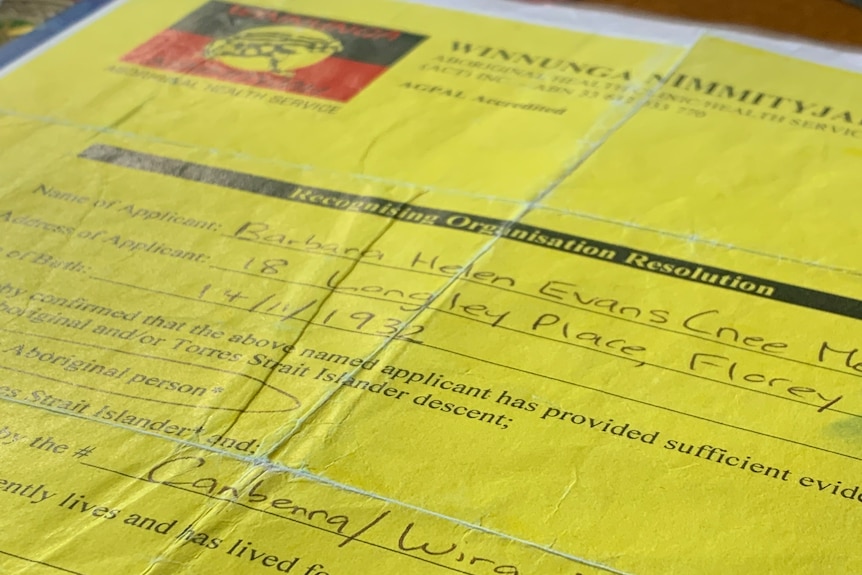 WINNUNGA NIMMITYJA
ABORIGINAL HEALTH SERVICE
ABORIGINAL HEALTH CLINIC HEALTH SERVIC
(ACT) INC ABN 33
AGPAL Accredited
Recognising Organisation Resolution
Name of Applicant: Barbara Helen Evans (nee
Address of Applicant: 18 Langley Place, Florey
of Birth: 14/11/1932
by confirmed that the above named applicant has provided sufficient evide
original and/or Torres Strait Islander descent;
Aboriginal person*
es Strait Islander* and;
by the # Canberra/ Wira
ently lives and has lived fo